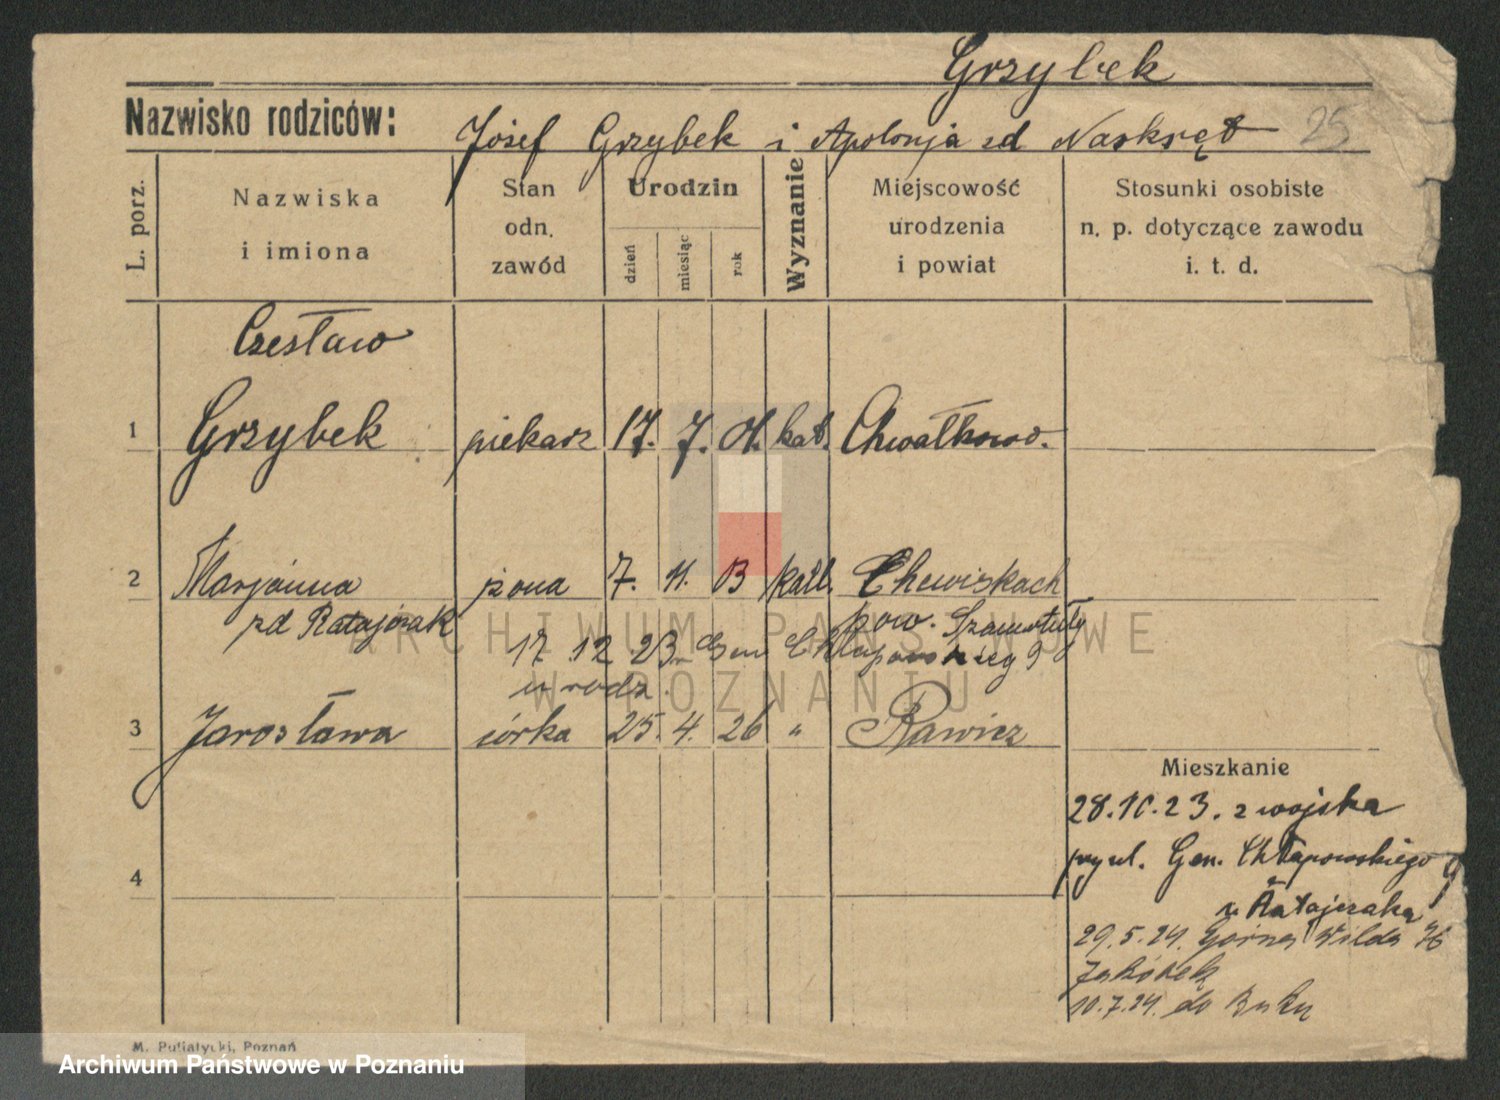 Grzybek
Nazwisko rodziców: Józef Grzybek i Apolonja zd Naskręt 25
L. porz.
Nazwiska i imiona
Stan odn. zawód
Urodzin
dzień
miesiąc
rok
Wyznanie
Miejscowość urodzenia i powiat
Stosunki osobiste n. p. dotyczące zawodu i. t. d.
Czesław
1 Grzybek piekarz 17. 7. 01. kat. Chwałkowo.
2 Marjanna żona 7. 11. 03 kath. Chewiskach
zd Ratajczak pow. Szamotuły
17 12 23 Gen Chłapowskieg 9
u rodz.
3 Jarosława córka 25. 4. 26 " Rawicz
Mieszkanie
28.10.23. z wojska
przy ul. Gen. Chłapowskiego 9
4
u Ratajczaka
29.5.24. Górna Wilda 76
10.7.24. do Buku
M. Putiatycki, Poznań
ARCHIWUM PAŃSTWOWE
W POZNANIU
Archiwum Państwowe w Poznaniu